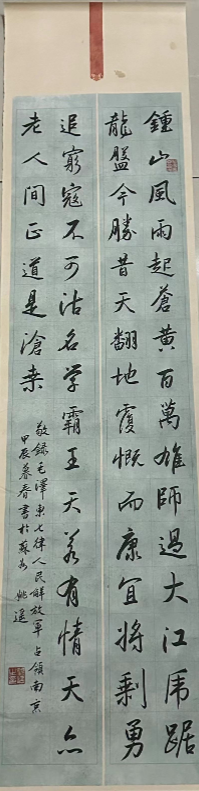 鍾山風雨起蒼黃百萬雄師過大江虎踞
龍盤今勝昔天翻地覆慨而康宜將剩勇
追窮寇不可沽名学霸王天若有情天亦
老人間正道是滄桑
敬錄毛澤東七律人民解放軍占領南京
甲辰暮春書於蘇 姚遥